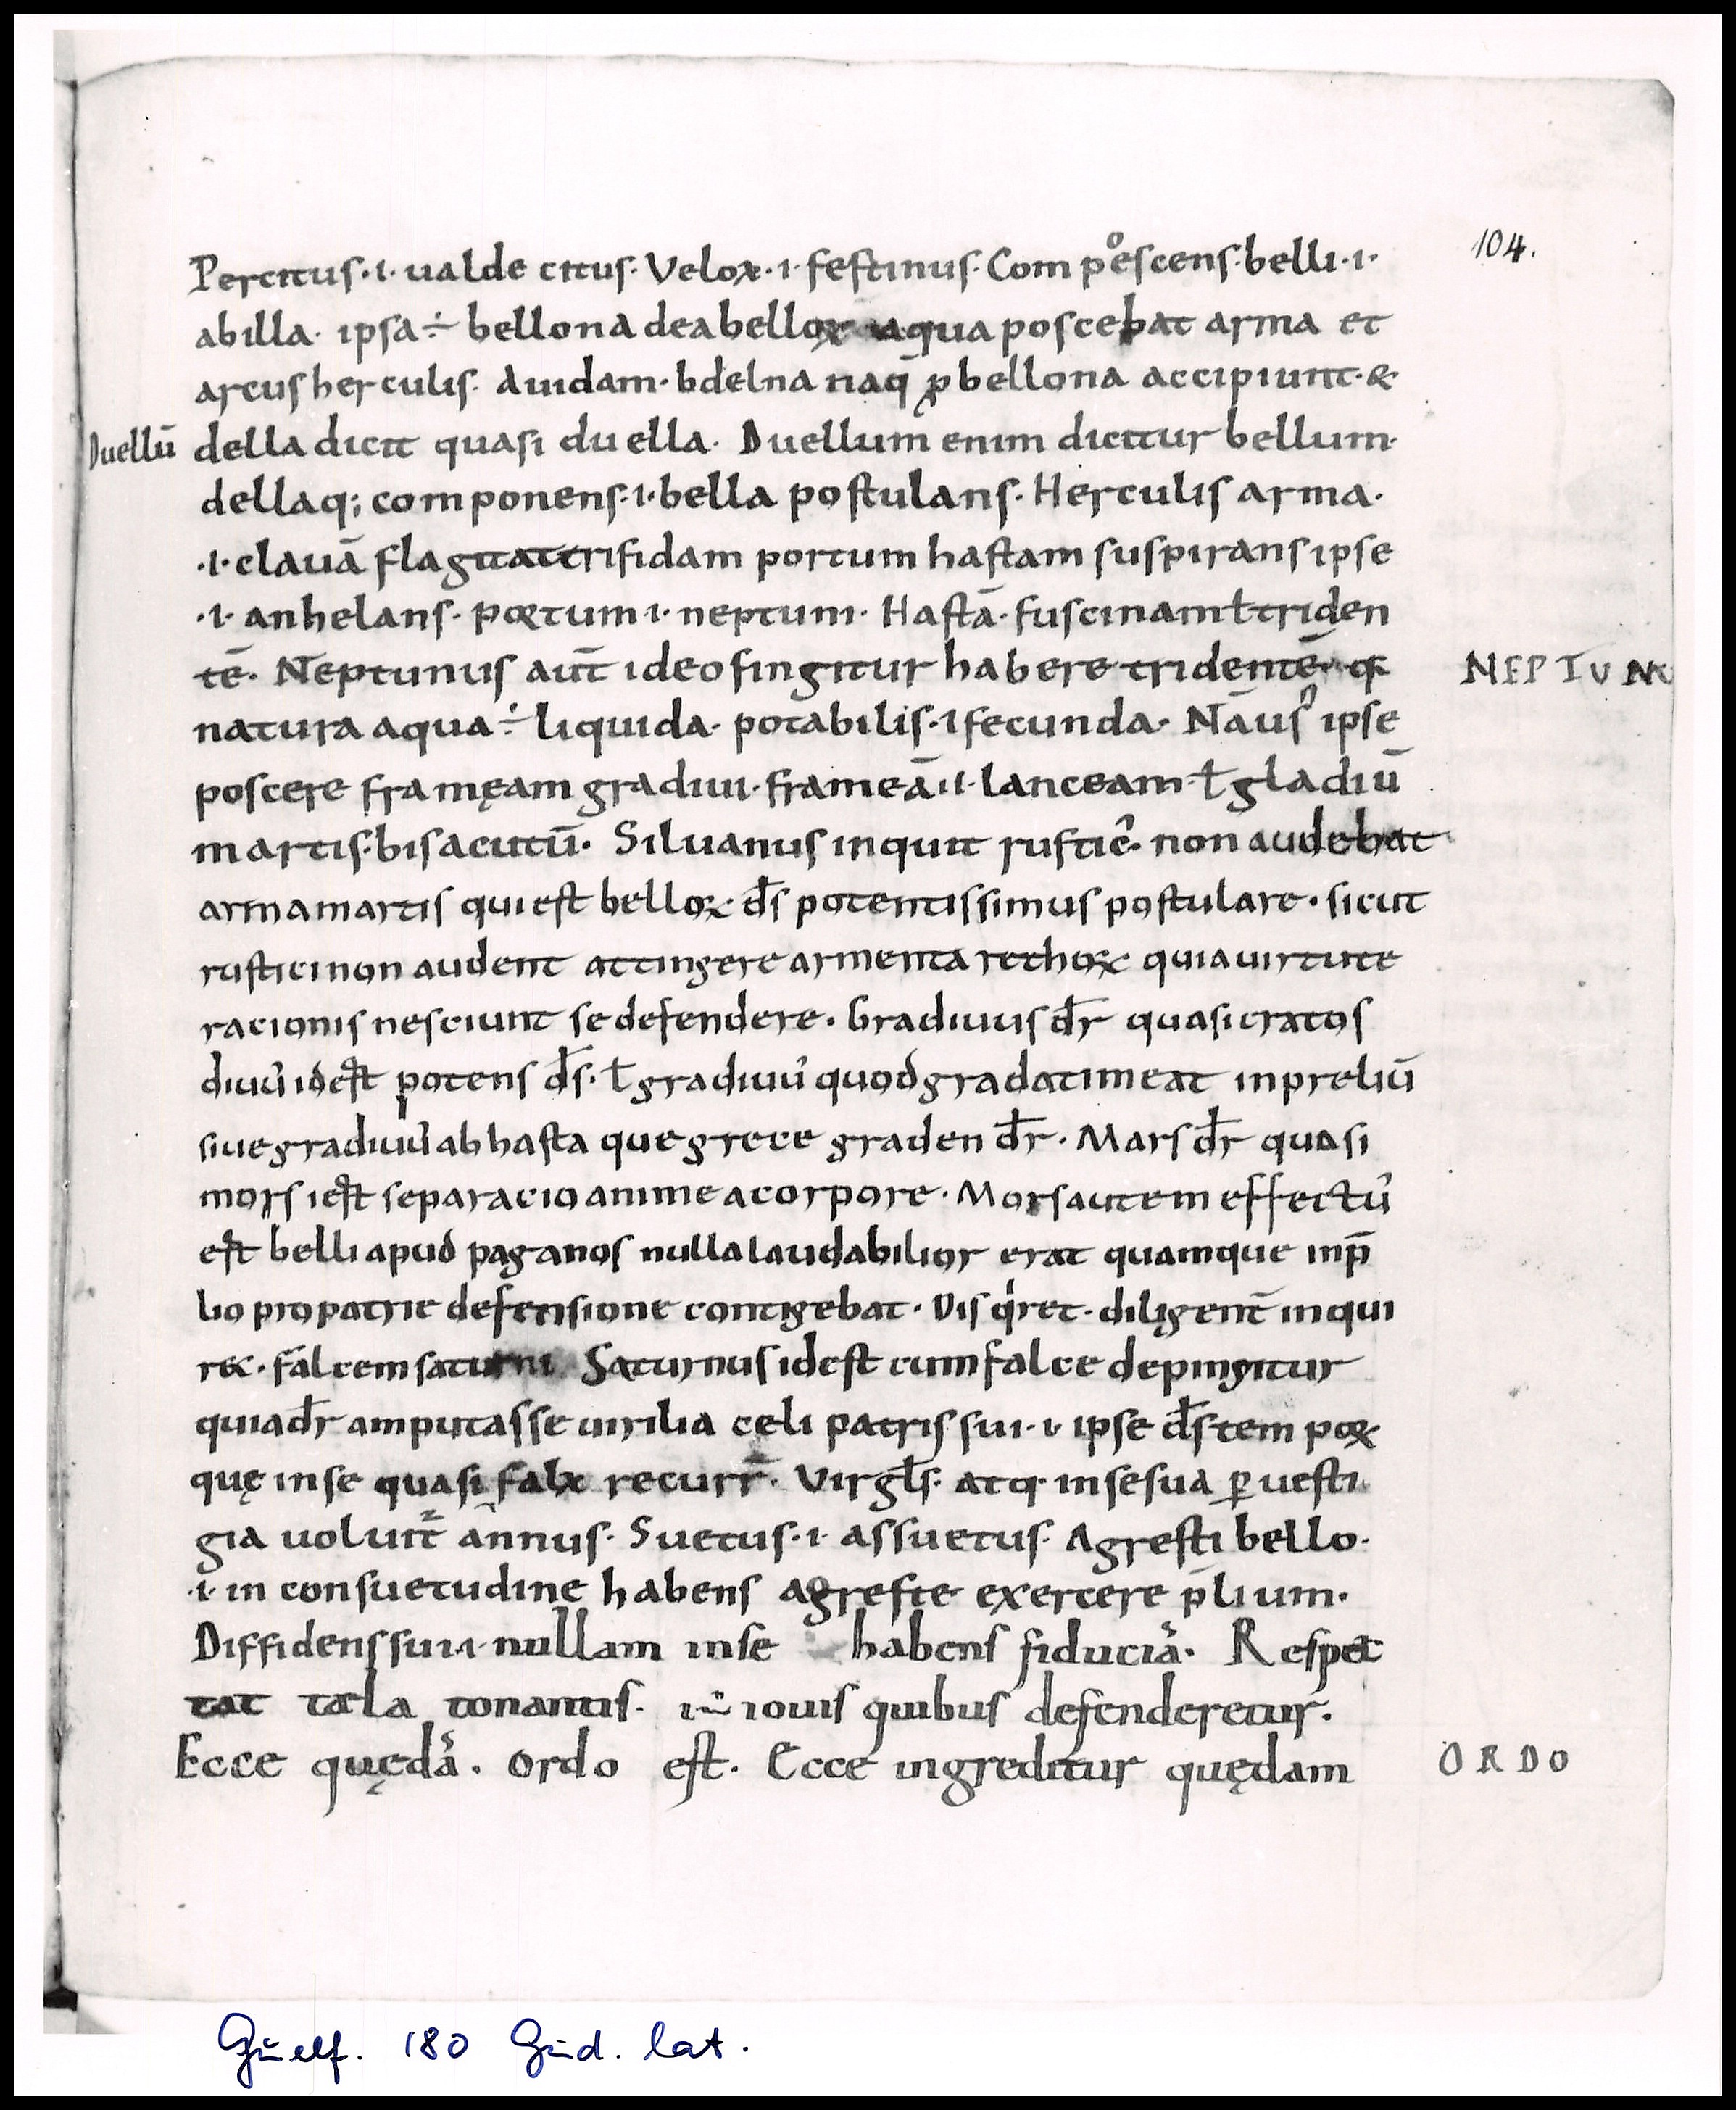 104.
Percitus · i · ualde citus · Velox · i · festinus · Com pescens · belli · i ·
abilla · ipsa ÷ bellona dea belloꝝ a qua poscebat arma et
arcus herculis · Auidam · bdelna naq̄ ꝓ bellona accipiunt · &
Duellū della dicit quasi duella · Duellum enim dicitur bellum ·
dellaq; componens · i · bella postulans · Herculis arma ·
· i · clauā flagitat trifidam portum hastam suspirans ipse
· i · anhelans · portum · i · neptuni · Hastā · fuscinam ł triden
tē · Neptunus aūt ideo fingitur habere tridentē q
NEPTUN
natura aqua ÷ liquida · potabilis · i fecunda · Nāus ipse
poscere framęam gradiui · frameā · i · lanceam · ł gladiū
martis · bis acutū · Siluanus inquit rustic᷒ · non audebat
arma martis qui est belloꝝ d̄s potentissimus postulare · sicut
rustici non audent attingere armenta rethoꝝ quia uirtute
racionis nesciunt se defendere · Gradiuus dr̄ quasi cratos
diuū idest potens d̄s · ł gradiuū quod gradatim eat in preliū
siue gradiuū ab hasta que grece graden dr̄ · Mars dr̄ quasi
mors iest separacio anime a corpore · Mors autem effectū
est belli apud paganos nulla laudabilior erat quam que in p̄
lio pro patrie defensione contigebat · Disq̇ret · diligent̄ inqui
ret · falcem saturni Saturnus idest cum falce depingitur
quia dr̄ amputasse uirilia celi patris sui · i · ipse d̄s tempoꝝ
quę in se quasi falx recurr̄ · Virgl̄s · atq · in se sua ꝑ uesti
gia uoluit̄ annus · Suetus · i · assuetus · Agresti bello ·
· i · in consuetudine habens agreste exercere p̄lium ·
Diffidens sui · i · nullam in se habens fiduciā · Respec
tat tela tonantis · i · iouis quibus defenderetur ·
Ecce quędā · Ordo est · Ecce ingreditur quędam
ORDO
Guelf. 180 Gud. lat.